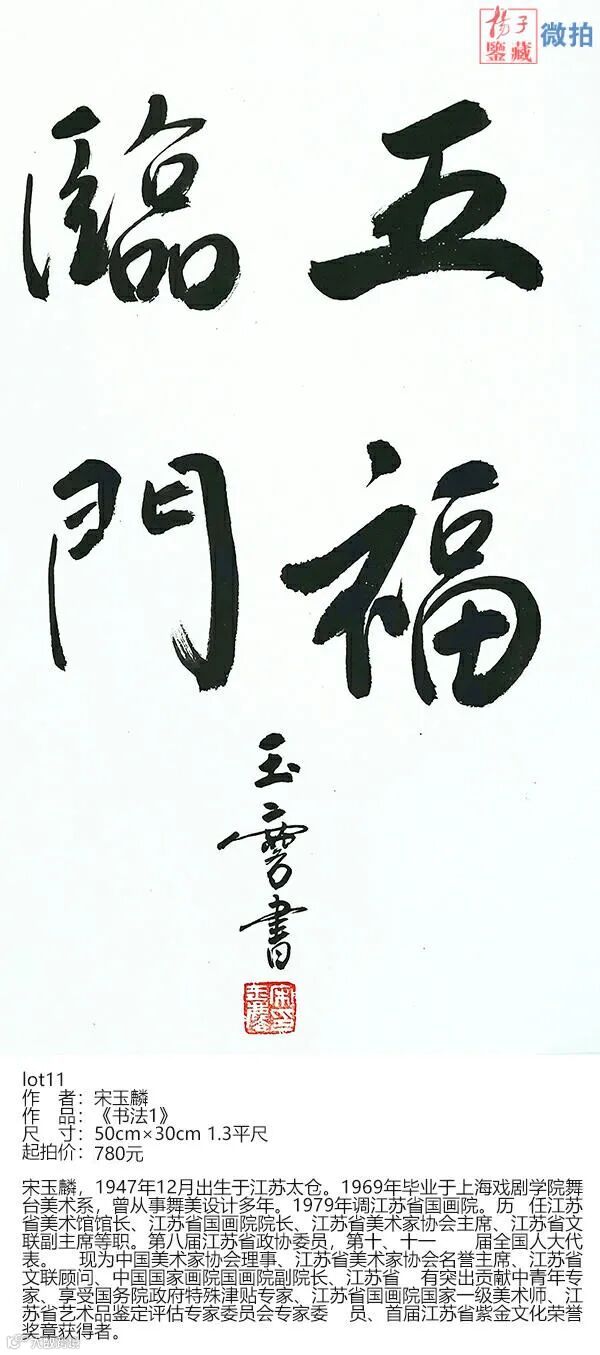 楊子
鑒藏
微拍
五福
臨門
玉麐書
lot11
作 者：宋玉麟
作 品：《书法1》
尺 寸：50cm×30cm 1.3平尺
起拍价：780元
宋玉麟，1947年12月出生于江苏太仓。1969年毕业于上海戏剧学院舞
台美术系，曾从事舞美设计多年。1979年调江苏省国画院。历 任江苏
省美术馆馆长、江苏省国画院院长、江苏省美术家协会主席、江苏省文
联副主席等职。第八届江苏省政协委员，第十、十一 届全国人大代
表。 现为中国美术家协会理事、江苏省美术家协会名誉主席、江苏省
文联顾问、中国国家画院国画院副院长、江苏省 有突出贡献中青年专
家、享受国务院政府特殊津贴专家、江苏省国画院国家一级美术师、江
苏省艺术品鉴定评估专家委员会专家委 员、首届江苏省紫金文化荣誉
奖章获得者。